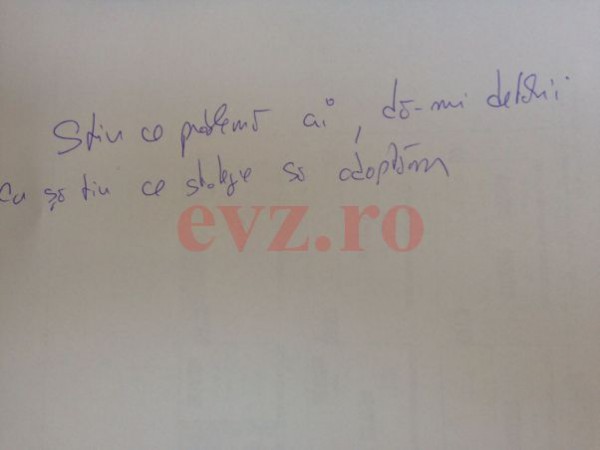 Știu ce problemă ai, dă-mi detalii
ca să știu ce strategie să adoptăm
evz.ro